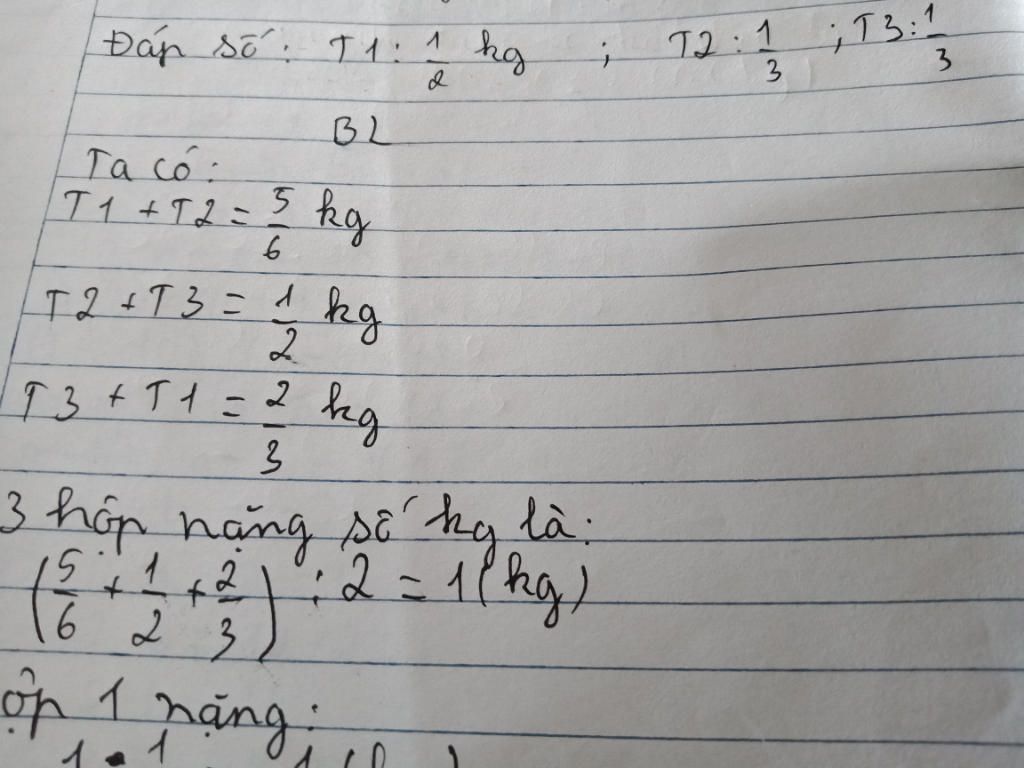 Đáp số: T1: 1/2 kg ; T2: 1/3 ; T3: 1/3
B2
Ta có:
T1 + T2 = 5/6 kg
T2 + T3 = 1/2 kg
T3 + T1 = 2/3 kg
3 hộp nặng số kg là:
(5/6 + 1/2 + 2/3) : 2 = 1 (kg)
ộp 1 nặng: